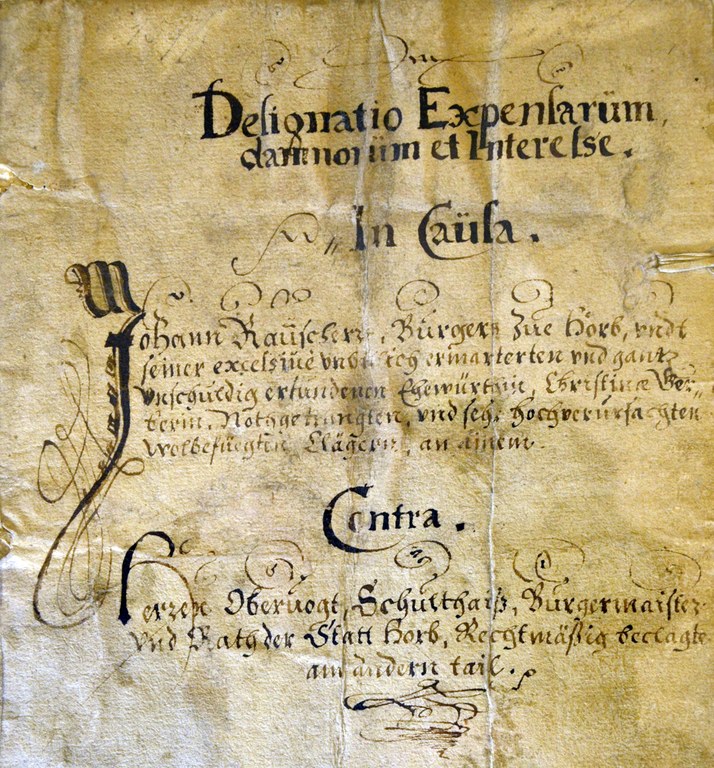 Designatio Expensarüm,
damnorüm et Interesse.
In Caüsa.
Johann Raüschers, Bürgers züe Horb, vndt
seiner excessiuè vnd hoch ermarterten vnd gantz
vnschuldig erfundenen Ehewürthin, Christinæ Ger-
berin, Nothgetrungten, vnd sehr hochverürsachten
wolbefüegten Clägern, an ainem.
Contra.
Herren Obervogt, Schulthaiß, Bürgermaister
vnd Rath der Statt Horb, Rechtmäßig beclagte
am andern tail.